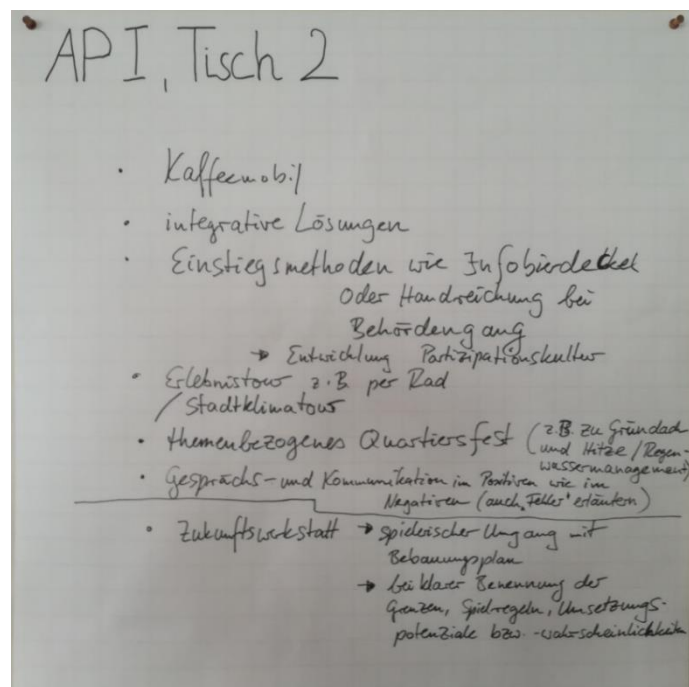 API, Tisch 2
• Kaffeemobil
• integrative Lösungen
• Einstiegsmethoden wie Infobierdeckel
oder Handreichung bei
Behördengang
→ Entwicklung Partizipationskultur
• Erlebnistour z.B. per Rad
/ Stadtklimatour
• themenbezogenes Quartiersfest (z.B. zu Gründach
und Hitze/Regen-
wassermanagement)
• Gesprächs- und Kommunikation im Positiven wie im
Negativen (auch "Fehler" erläutern)
• Zukunftswerkstatt → spielerischer Umgang mit
Bebauungsplan
→ bei klarer Benennung der
Grenzen, Spielregeln, Umsetzungs-
potenziale bzw. -wahrscheinlichkeiten